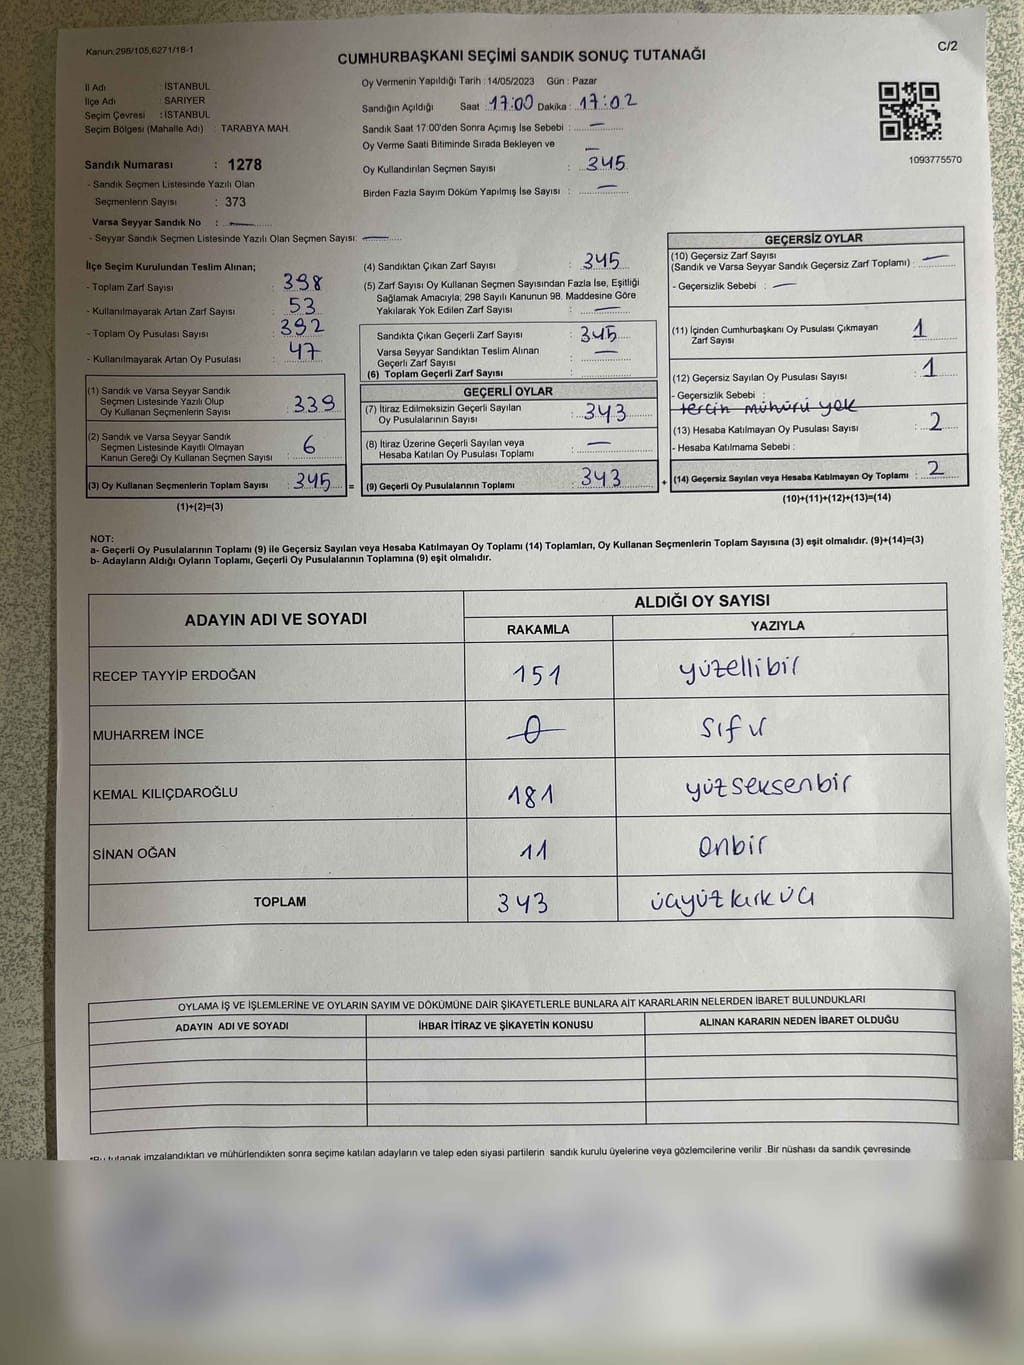 Kanun,298/105,6271/18-1
C/2
CUMHURBAŞKANI SEÇİMİ SANDIK SONUÇ TUTANAĞI
İl Adı : İSTANBUL
İlçe Adı : SARIYER
Seçim Çevresi : İSTANBUL
Seçim Bölgesi (Mahalle Adı) : TARABYA MAH.
Oy Vermenin Yapıldığı Tarih : 14/05/2023 Gün : Pazar
Sandığın Açıldığı Saat : 17:00 Dakika : 17:02
Sandık Saat 17:00'den Sonra Açımış İse Sebebi : —
Oy Verme Saati Bitiminde Sırada Bekleyen ve —
Oy Kullandırılan Seçmen Sayısı : 345
Birden Fazla Sayım Döküm Yapılmış İse Sayısı : —
1093775570
Sandık Numarası : 1278
- Sandık Seçmen Listesinde Yazılı Olan
Seçmenlerin Sayısı : 373
Varsa Seyyar Sandık No : —
- Seyyar Sandık Seçmen Listesinde Yazılı Olan Seçmen Sayısı: —
İlçe Seçim Kurulundan Teslim Alınan;
- Toplam Zarf Sayısı : 398
- Kullanılmayarak Artan Zarf Sayısı : 53
- Toplam Oy Pusulası Sayısı : 392
- Kullanılmayarak Artan Oy Pusulası : 47
(1) Sandık ve Varsa Seyyar Sandık
Seçmen Listesinde Yazılı Olup
Oy Kullanan Seçmenlerin Sayısı : 339
(2) Sandık ve Varsa Seyyar Sandık
Seçmen Listesinde Kayıtlı Olmayan
Kanun Gereği Oy Kullanan Seçmen Sayısı : 6
(3) Oy Kullanan Seçmenlerin Toplam Sayısı : 345 =
(1)+(2)=(3)
(4) Sandıktan Çıkan Zarf Sayısı : 345
(5) Zarf Sayısı Oy Kullanan Seçmen Sayısından Fazla İse, Eşitliği
Sağlamak Amacıyla; 298 Sayılı Kanunun 98. Maddesine Göre
Yakılarak Yok Edilen Zarf Sayısı : —
Sandıkta Çıkan Geçerli Zarf Sayısı : 345
Varsa Seyyar Sandıktan Teslim Alınan
Geçerli Zarf Sayısı : —
(6) Toplam Geçerli Zarf Sayısı :
GEÇERLİ OYLAR
(7) İtiraz Edilmeksizin Geçerli Sayılan
Oy Pusulalarının Sayısı : 343
(8) İtiraz Üzerine Geçerli Sayılan veya
Hesaba Katılan Oy Pusulası Toplamı : —
(9) Geçerli Oy Pusulalarının Toplamı : 343 +
GEÇERSİZ OYLAR
(10) Geçersiz Zarf Sayısı
(Sandık ve Varsa Seyyar Sandık Geçersiz Zarf Toplamı) : —
- Geçersizlik Sebebi : —
(11) İçinden Cumhurbaşkanı Oy Pusulası Çıkmayan
Zarf Sayısı : 1
(12) Geçersiz Sayılan Oy Pusulası Sayısı : 1
- Geçersizlik Sebebi :
tercih mühürü yok
(13) Hesaba Katılmayan Oy Pusulası Sayısı : 2
- Hesaba Katılmama Sebebi :
(14) Geçersiz Sayılan veya Hesaba Katılmayan Oy Toplamı : 2
(10)+(11)+(12)+(13)=(14)
NOT:
a- Geçerli Oy Pusulalarının Toplamı (9) ile Geçersiz Sayılan veya Hesaba Katılmayan Oy Toplamı (14) Toplamları, Oy Kullanan Seçmenlerin Toplam Sayısına (3) eşit olmalıdır. (9)+(14)=(3)
b- Adayların Aldığı Oyların Toplamı, Geçerli Oy Pusulalarının Toplamına (9) eşit olmalıdır.
ADAYIN ADI VE SOYADI
ALDIĞI OY SAYISI
RAKAMLA YAZIYLA
RECEP TAYYİP ERDOĞAN 151 yüzellibir
MUHARREM İNCE 0 sıfır
KEMAL KILIÇDAROĞLU 181 yüzseksenbir
SİNAN OĞAN 11 onbir
TOPLAM 343 üçyüzkırküç
OYLAMA İŞ VE İŞLEMLERİNE VE OYLARIN SAYIM VE DÖKÜMÜNE DAİR ŞİKAYETLERLE BUNLARA AİT KARARLARIN NELERDEN İBARET BULUNDUKLARI
ADAYIN ADI VE SOYADI İHBAR İTİRAZ VE ŞİKAYETİN KONUSU ALINAN KARARIN NEDEN İBARET OLDUĞU
*Bu tutanak imzalandıktan ve mühürlendikten sonra seçime katılan adayların ve talep eden siyasi partilerin sandık kurulu üyelerine veya gözlemcilerine verilir .Bir nüshası da sandık çevresinde